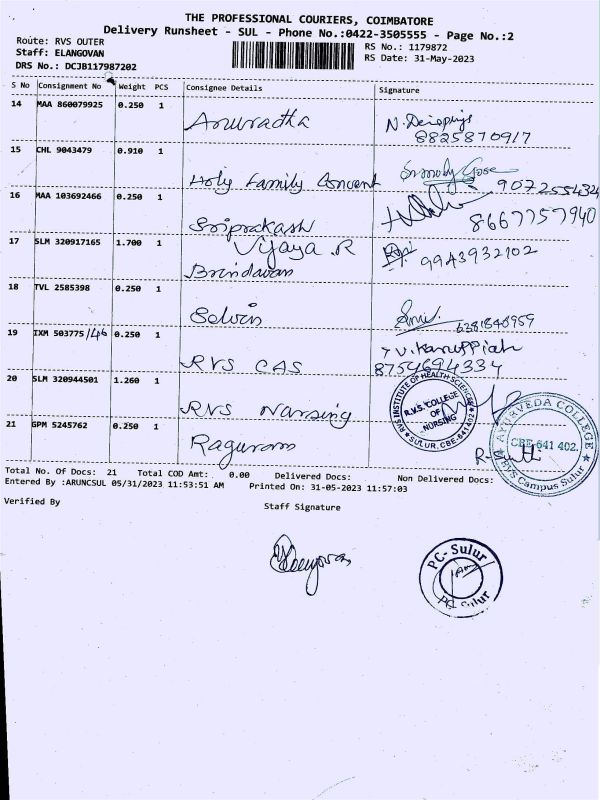 THE PROFESSIONAL COURIERS, COIMBATORE
Delivery Runsheet - SUL - Phone No.:0422-3505555 - Page No.:2
Route: RVS OUTER
RS No.: 1179872
Staff: ELANGOVAN
RS Date: 31-May-2023
DRS No.: DCJB117987202
S No Consignment No Weight PCS Consignee Details Signature
14 MAA 860079925 0.250 1 Anuradha
8825870917
15 CHL 9043479 0.910 1 Holy Family Convent
9072554324
16 MAA 103692466 0.250 1 Sriprakash
8667757940
17 SLM 320917165 1.700 1 Vijaya .R
Brindavan
9943932102
18 TVL 2585398 0.250 1 Selvin
6381840959
19 IXM 503775/46 0.250 1 RVS CAS
V. Karuppiah
8754694334
20 SLM 320944501 1.260 1 RVS Nursing
RVS INSTITUTE OF HEALTH SCIENCES
R.V.S. COLLEGE
OF
NURSING
SULUR, CBE-641402
21 GPM 5245762 0.250 1 Raguram
AYURVEDA COLLEGE
CBE 641 402.
RVS Campus Sulur
Total No. Of Docs: 21 Total COD Amt: 0.00 Delivered Docs: Non Delivered Docs:
Entered By :ARUNCSUL 05/31/2023 11:53:51 AM Printed On: 31-05-2023 11:57:03
Verified By
Staff Signature
PC- Sulur
PC- Sulur